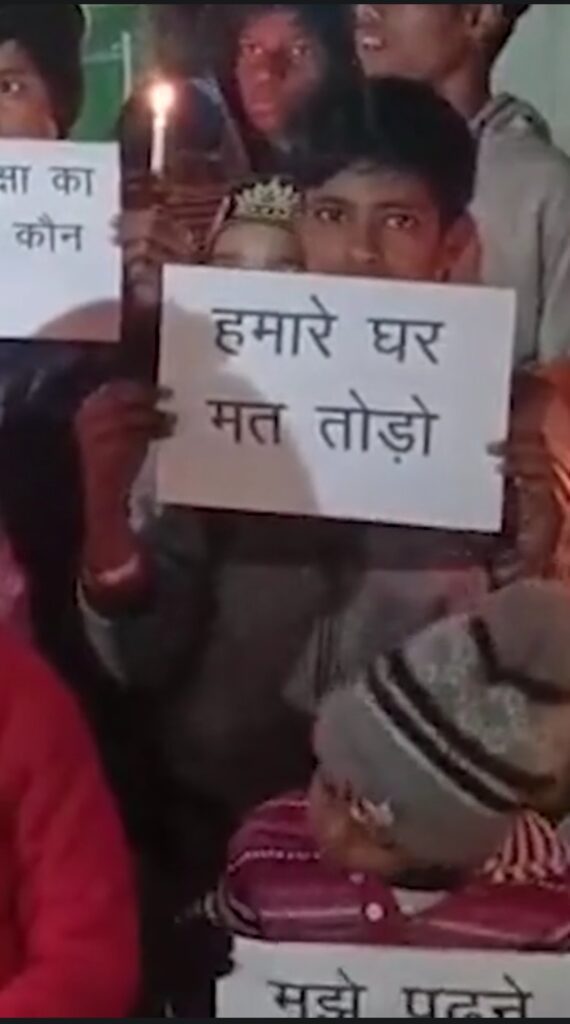 क्षा का
कौन
हमारे घर
मत तोड़ो
मुझे पढ़ने